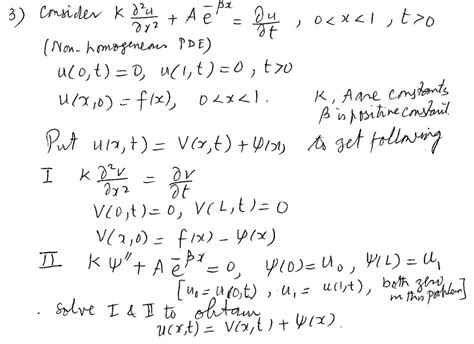 3) Consider K ∂²u/∂x² + A e^{-βx} = ∂u/∂t , 0<x<1, t>0
(Non-homogeneous PDE)
u(0,t)=0, u(1,t)=0, t>0
u(x,0)=f(x), 0<x<1.
K, A are constants
β is positive constant.
Put u(x,t) = V(x,t) + ψ(x), to get following
I K ∂²v/∂x² = ∂v/∂t
V(0,t)=0, V(L,t)=0
V(x,0) = f(x) – ψ(x)
II Kψ″ + A e^{-βx} = 0, ψ(0)=u₀, ψ(L)=u₁
[u₀ = u(0,t), u₁ = u(1,t), both zero in this problem]
. Solve I & II to obtain
u(x,t) = V(x,t) + ψ(x).